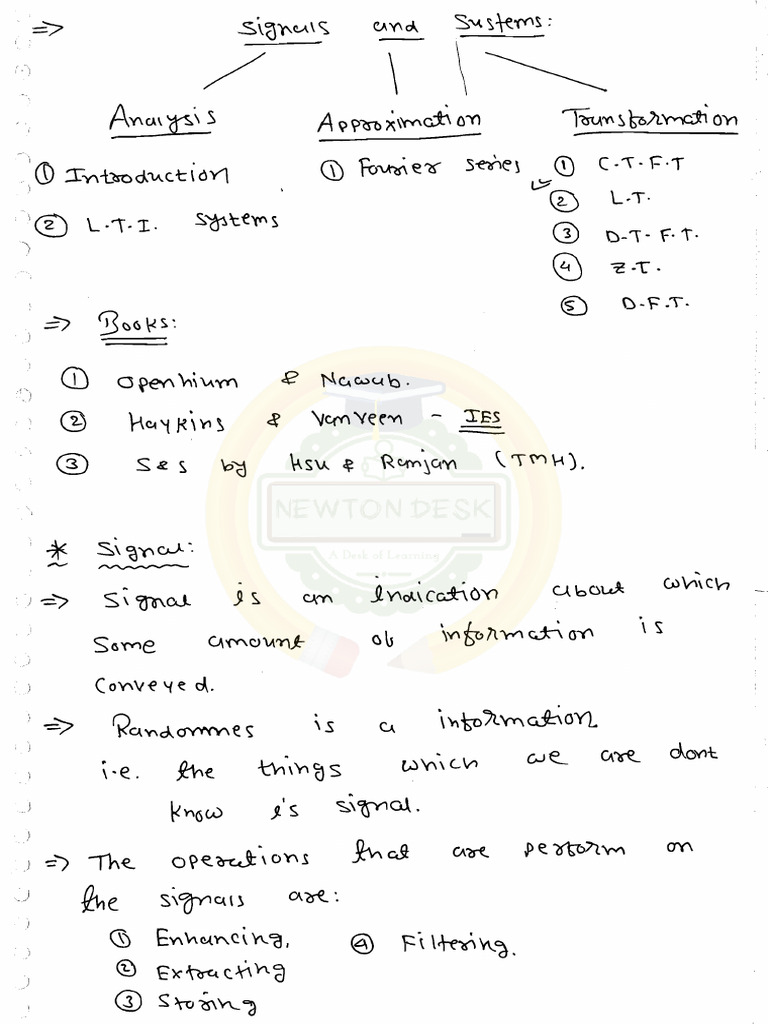 ⇒ Signals and Systems:
Analysis Approximation Transformation
① Introduction ① Fourier series ① C.T.F.T
② L.T.I. systems ② L.T.
③ D.T.F.T.
④ Z.T.
⑤ D.F.T.
⇒ Books:
① Openhium & Nawab.
② Haykins & Vanveen - IES
③ S&S by Hsu & Ranjan (TMH).
NEWTON DESK
A Desk of Learning
* Signal:
⇒ Signal is an Indication about which
Some amount of information is
Conveyed.
⇒ Randomnes is a information
i.e. the things which we are dont
know is signal.
⇒ The operations that are perform on
the signals are:
① Enhancing, ④ Filtering.
② Extracting
③ Storing